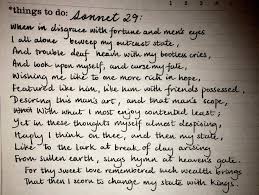 *things to do: Sonnet 29:
When in disgrace with fortune and men's eyes
I all alone beweep my outcast state,
And trouble deaf heav'n with my bootless cries,
And look upon myself, and curse my fate,
Wishing me like to one more rich in hope,
Featured like him, like him with friends possessed,
Desiring this man's art, and that man's scope,
With what I most enjoy contented least;
Yet in these thoughts myself almost despising,
Haply I think on thee, and then my state,
Like to the lark at break of day arising
From sullen earth, sings hymns at heaven's gate.
For thy sweet love remembered such wealth brings
That then I scorn to change my state with kings.